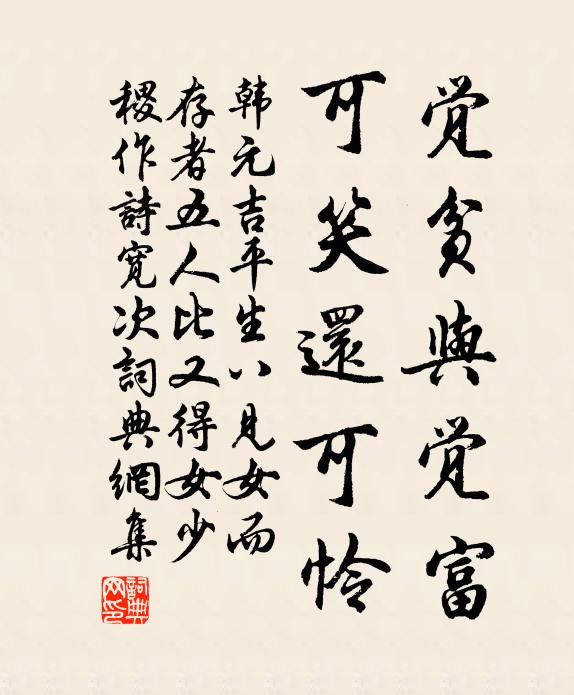 觉贫與觉富
可笑還可怜
韩元吉平生八見女而
存者五人比又得女少
稷作詩寛次詞典網集
詞典网印